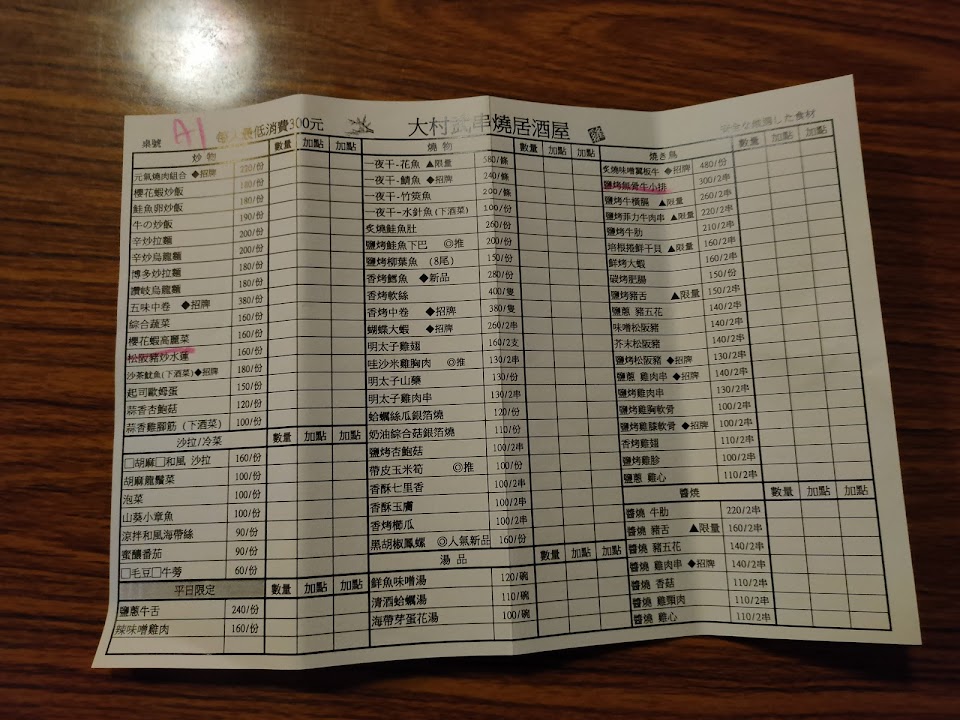 桌號 A1 每人最低消費300元 大村武串燒居酒屋 安全な厳選した食材
炒 物 數量 加點 加點
元氣燒肉組合 ◆招牌 220/份
櫻花蝦炒飯 180/份
鮭魚卵炒飯 180/份
牛の炒飯 190/份
辛炒拉麵 200/份
辛炒烏龍麵 200/份
博多炒拉麵 180/份
讚岐烏龍麵 180/份
五味中卷 ◆招牌 380/份
綜合蔬菜 160/份
櫻花蝦高麗菜 160/份
松阪豬炒水蓮 160/份
沙茶魷魚(下酒菜)◆招牌 180/份
起司歐姆蛋 150/份
蒜香杏鮑菇 120/份
蒜香雞腳筋 (下酒菜) 100/份
沙拉/冷菜 數量 加點 加點
□胡麻□和風 沙拉 160/份
胡麻龍鬚菜 100/份
泡菜 100/份
山葵小章魚 100/份
涼拌和風海帶絲 90/份
蜜釀番茄 90/份
□毛豆□牛蒡 60/份
平日限定 數量 加點 加點
鹽蔥牛舌 240/份
辣味噌雞肉 160/份
燒 物 數量 加點 加點
一夜干-花魚 ▲限量 580/條
一夜干-鯖魚 ◆招牌 240/條
一夜干-竹筴魚 200/條
一夜干-水針魚(下酒菜) 100/份
炙燒鮭魚肚 260/份
鹽烤鮭魚下巴 ◎推 200/份
鹽烤柳葉魚 (8尾) 150/份
香烤鱈魚 ◆新品 280/份
香烤軟絲 400/隻
香烤中卷 ◆招牌 380/隻
蝴蝶大蝦 ◆招牌 260/2串
明太子雞翅 160/2支
哇沙米雞胸肉 ◎推 130/2串
明太子山藥 130/份
明太子雞肉串 130/2串
蛤蠣絲瓜銀箔燒 120/份
奶油綜合菇銀箔燒 110/份
鹽烤杏鮑菇 100/2串
帶皮玉米筍 ◎推 100/份
香酥七里香 100/2串
香酥玉膚 100/2串
香烤櫛瓜 100/2串
黑胡椒鳳螺 ◎人氣新品 160/份
湯 品 數量 加點 加點
鮮魚味噌湯 120/碗
清酒蛤蠣湯 110/碗
海帶芽蛋花湯 100/碗
燒き鳥 數量 加點 加點
炙燒味噌翼板牛 ◆招牌 480/份
鹽烤無骨牛小排 300/2串
鹽烤牛橫膈 ▲限量 260/2串
鹽烤菲力牛肉串 ▲限量 220/2串
鹽烤牛肋 210/2串
培根捲鮮干貝 ▲限量 160/2串
鮮烤大蝦 160/2串
碳烤肥腸 150/份
鹽烤豬舌 ▲限量 150/2串
鹽蔥 豬五花 140/2串
味噌松阪豬 140/2串
芥末松阪豬 140/2串
鹽烤松阪豬 ◆招牌 140/2串
鹽蔥 雞肉串 ◆招牌 140/2串
鹽烤雞肉串 130/2串
鹽烤雞胸軟骨 100/2串
鹽烤雞膝軟骨 ◆招牌 100/2串
香烤雞翅 110/2串
鹽烤雞胗 100/2串
鹽蔥 雞心 110/2串
醬燒 數量 加點 加點
醬燒 牛肋 220/2串
醬燒 豬舌 ▲限量 160/2串
醬燒 豬五花 140/2串
醬燒 雞肉串 ◆招牌 140/2串
醬燒 香菇 110/2串
醬燒 雞頸肉 110/2串
醬燒 雞心 110/2串